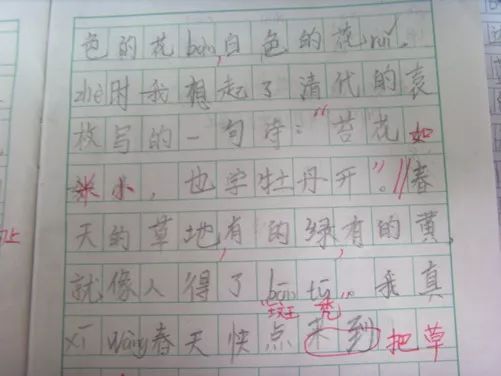 色的花bàn,白色的花ruǐ.
zhè时我想起了清代的袁
枚写的一句诗:“苔花如
米小,也学牡丹开”。//春
天的草地,有的绿,有的黄,
就像人得了bān tū。我真
斑 秃
xī wàng春天快点来到 把草
上